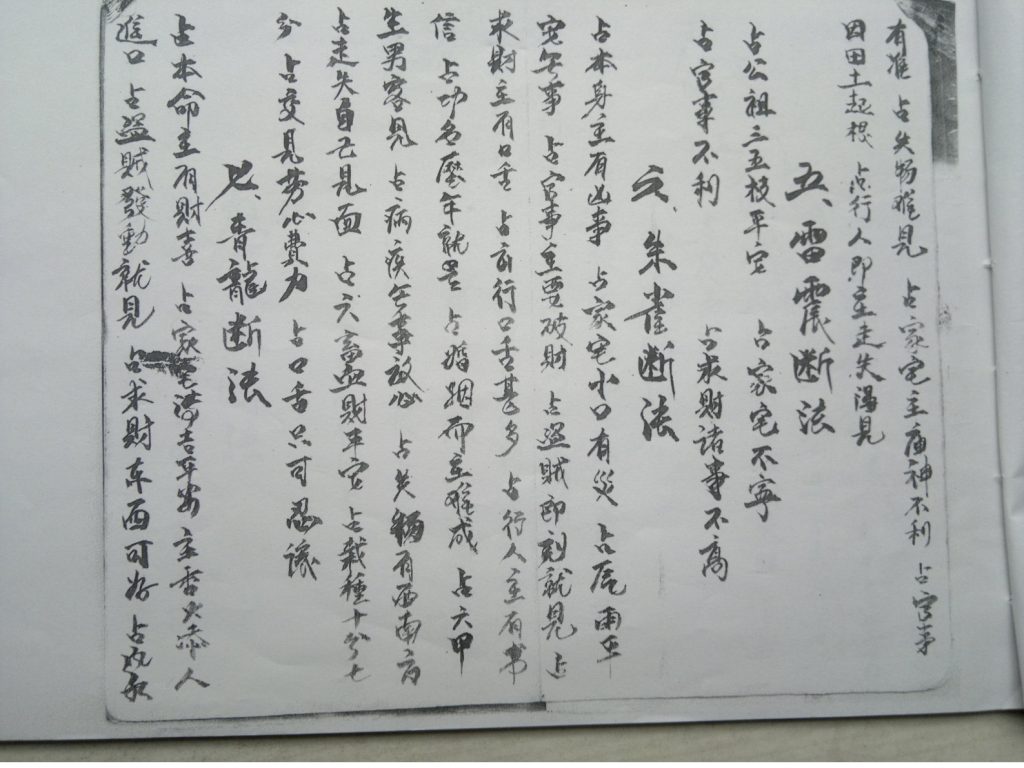 有准 占失物难見 占家宅主庙神不利 占官事
因田土起根 占行人即至走失陽見
五、雷震断法
占公祖三五枝平安 占家宅不宁
占官事不利 占求財諸事不高
六、朱雀断法
占本身主有凶事 占家宅小口有災 占 雨
安 事 占官事主要破財 占盗賊即刻就見 占
求財主有口舌 占 行口舌甚多 占行人主有书
信 占功名 年就 占婚姻而主难成 占六甲
生男客見 占病疾无事放心 占失物有西南方
占走失自己見面 占六畜血財平安 占栽種十分七
分 占交見劳心費力 占口舌只可忍讓
七、青龍断法
占本命主有財喜 占家宅 吉平安 主香火添人
進口 占盗賊發動就見 占求財东西可好 占